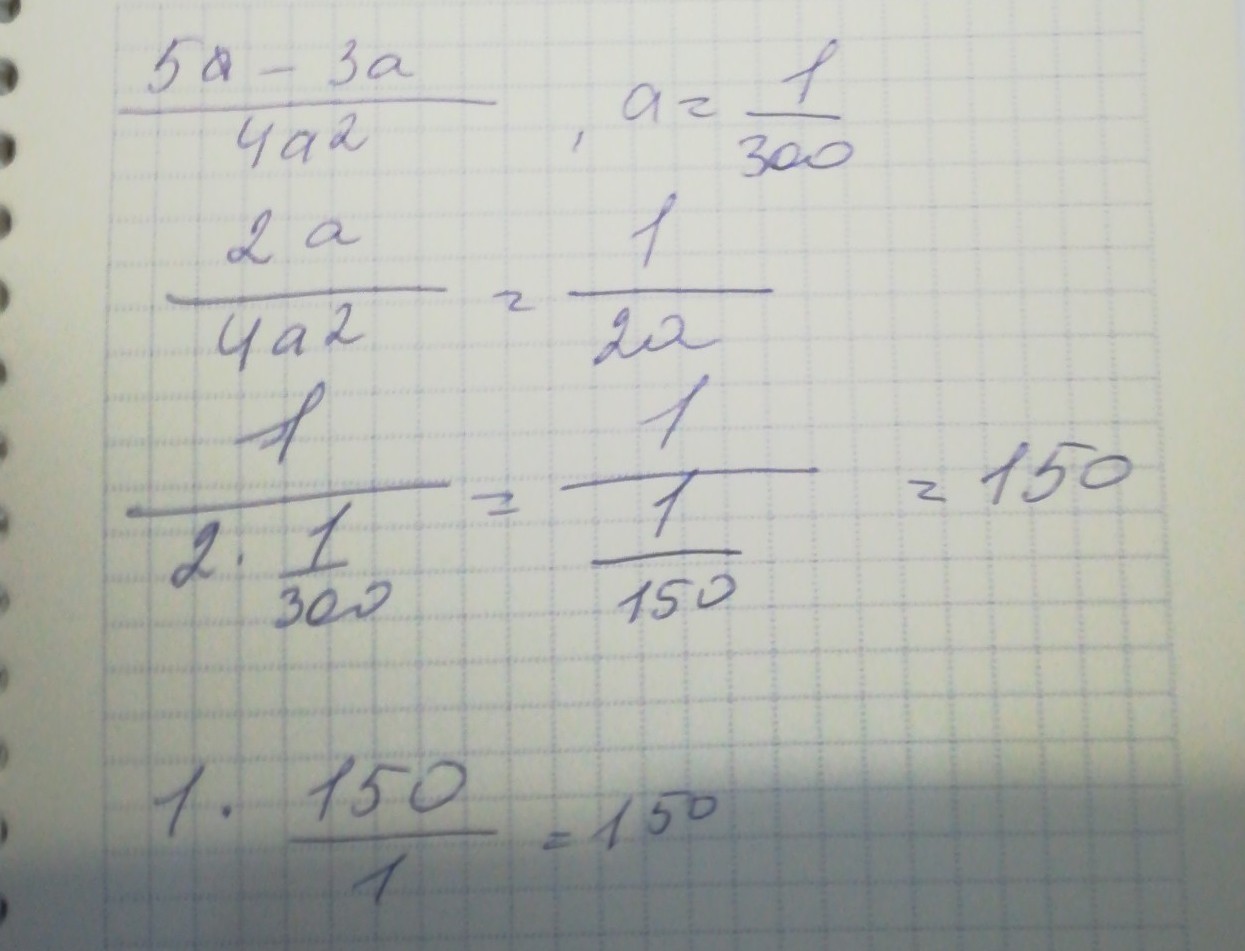 5a - 3a / 4a2 , a = 1/300
2a / 4a2 = 1 / 2a
1 / 2 · 1/300 = 1 / 1/150 = 150
1 · 150/1 = 150